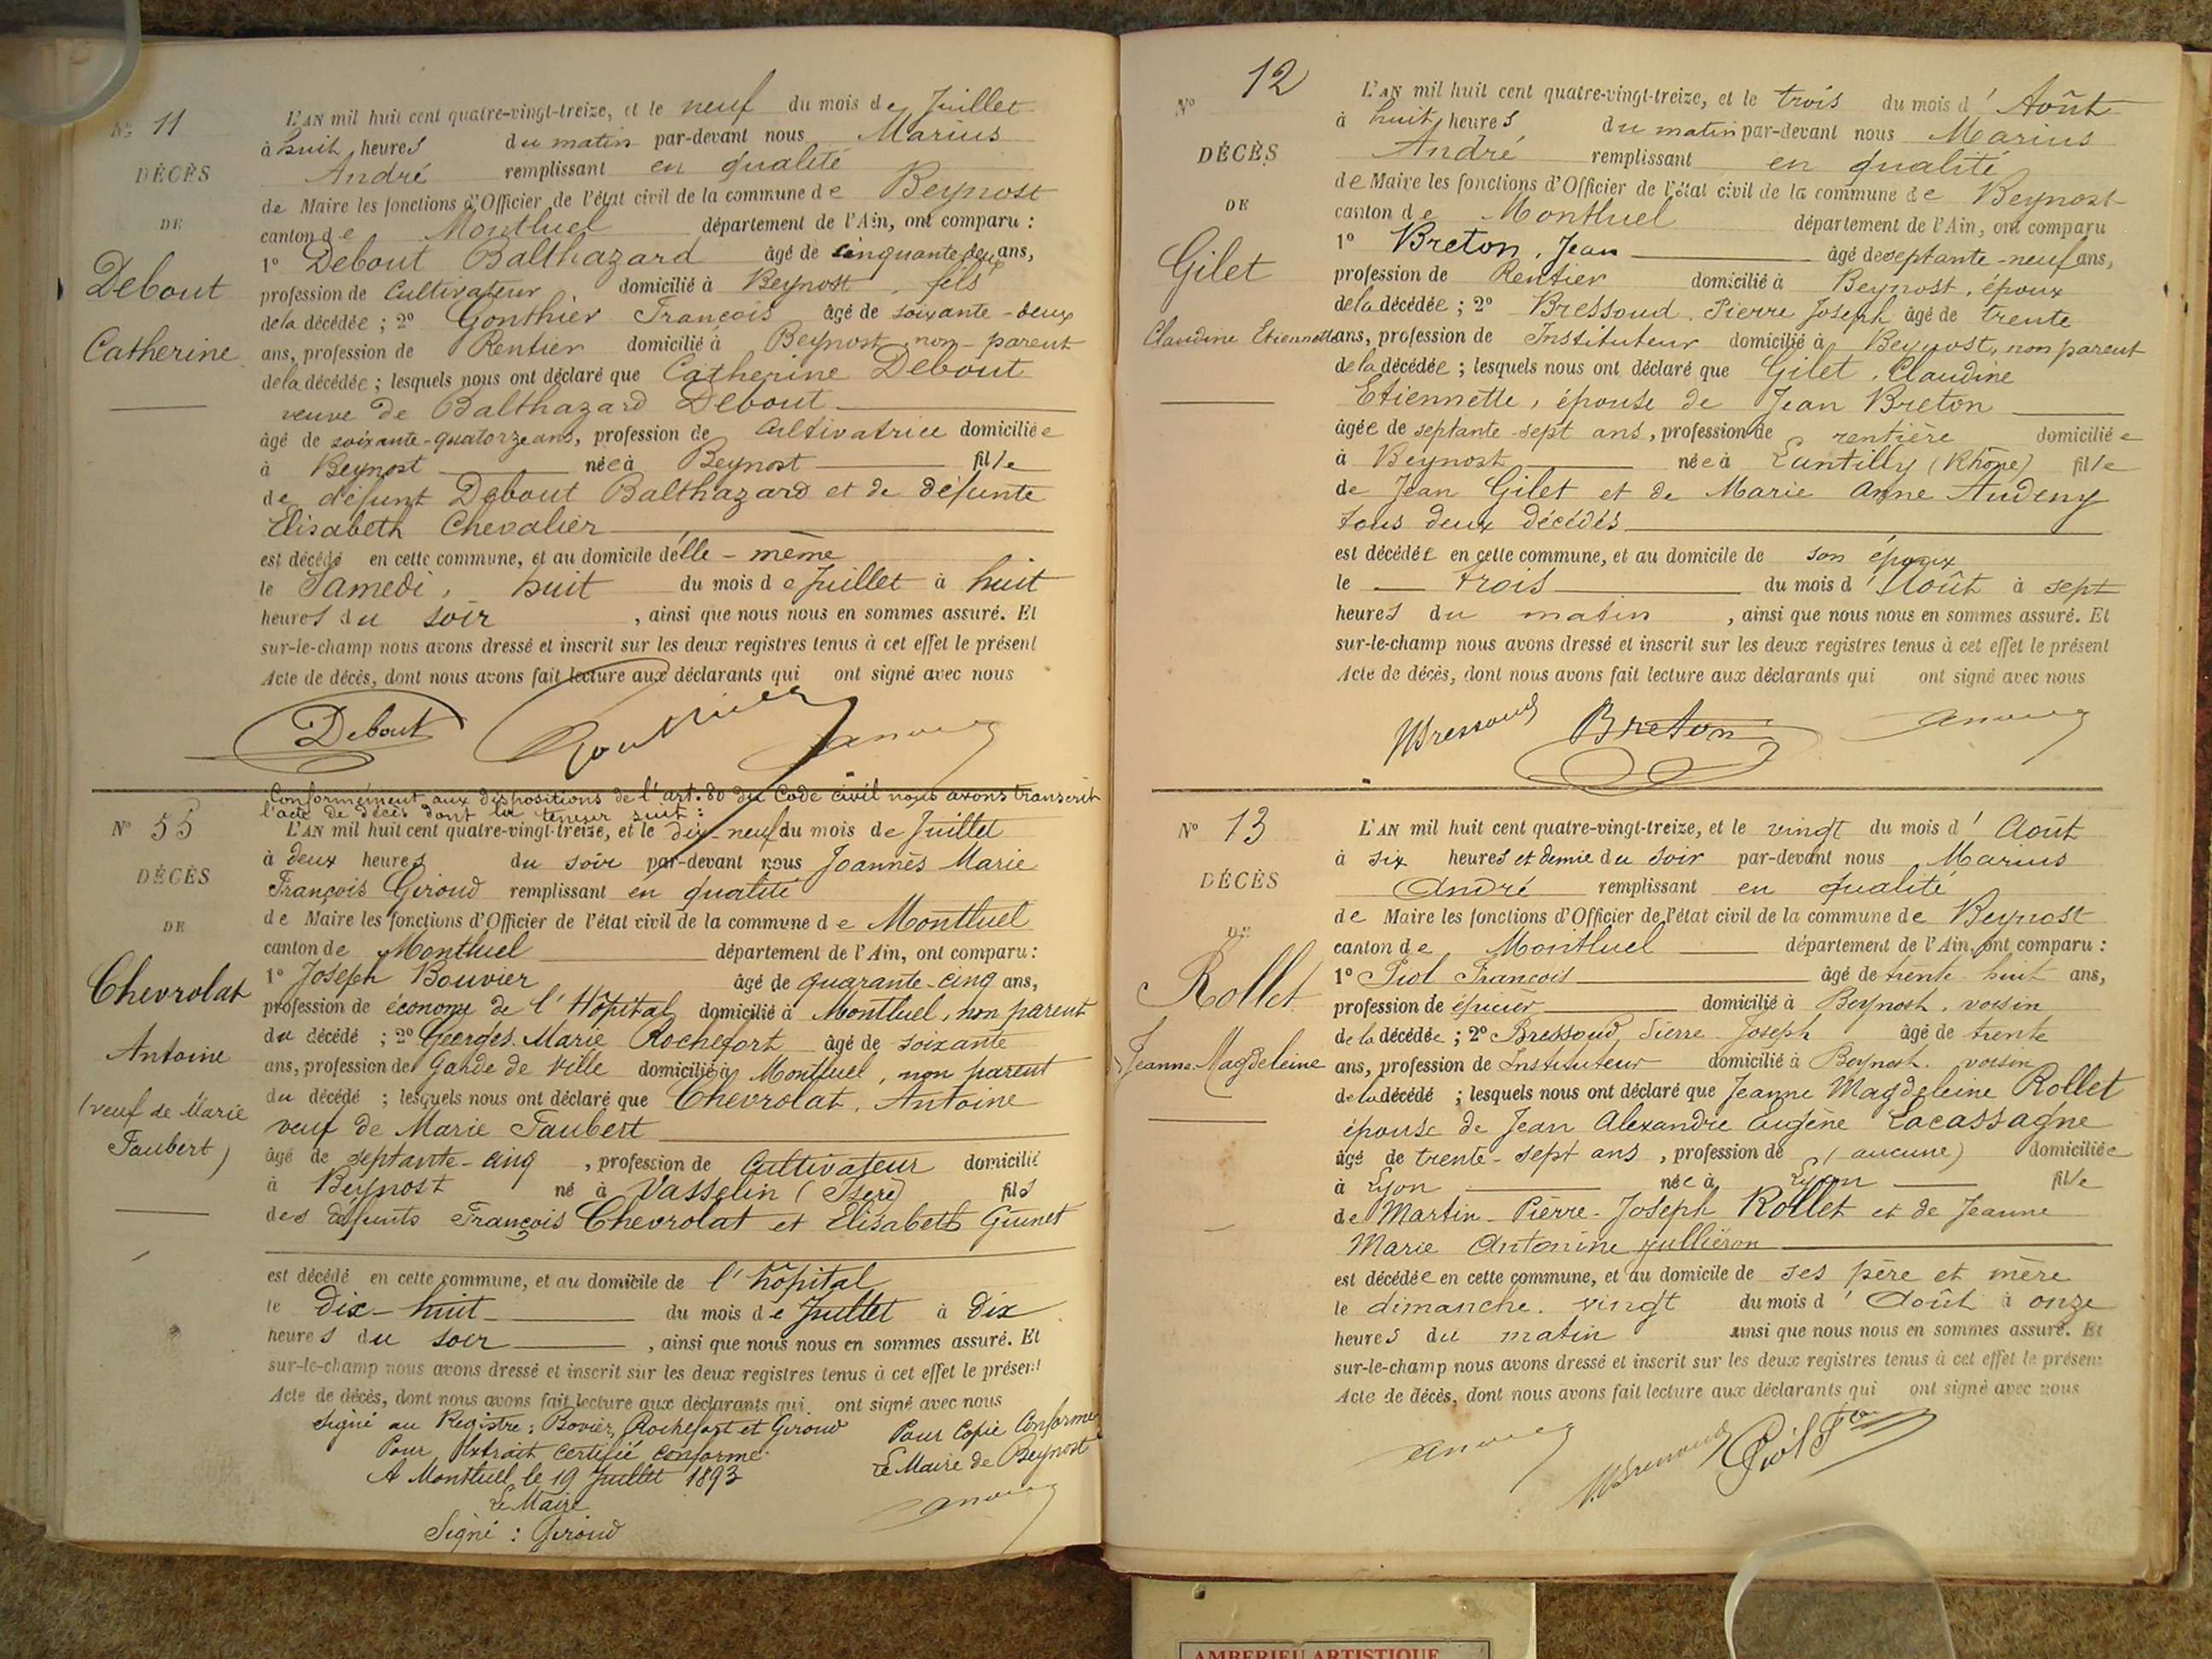 Nº 11
DÉCÈS
DE
Debout
Catherine
L'AN mil huit cent quatre-vingt-treize, et le neuf du mois de Juillet
à huit heures du matin par-devant nous Marius
André remplissant en qualité
de Maire les fonctions d'Officier de l'état civil de la commune de Beynost
canton de Montluel département de l'Ain, ont comparu :
1º Debout Balthazard âgé de cinquante deux ans,
profession de Cultivateur domicilié à Beynost, fils
de la décédée ; 2º Gonthier François âgé de soixante-deux
ans, profession de Rentier domicilié à Beynost, non-parent
de la décédée ; lesquels nous ont déclaré que Catherine Debout
veuve de Balthazard Debout
âgé de soixante-quatorze ans, profession de Cultivatrice domiciliée
à Beynost née à Beynost fille
de défunt Debout Balthazard et de défunte
Elisabeth Chevalier
est décédé en cette commune, et au domicile d'elle-même
le Samedi, huit du mois de Juillet à huit
heures du soir, ainsi que nous nous en sommes assuré. Et
sur-le-champ nous avons dressé et inscrit sur les deux registres tenus à cet effet le présent
Acte de décès, dont nous avons fait lecture aux déclarants qui ont signé avec nous
Debout Gonthier
Conformément aux dispositions de l'art. 80 du Code civil nous avons transcrit
l'acte de décès dont la teneur suit :
Nº 55
DÉCÈS
DE
Chevrolat
Antoine
(veuf de Marie
Faubert)
L'AN mil huit cent quatre-vingt-treize, et le dix-neuf du mois de Juillet
à deux heures du soir par-devant nous Joannès Marie
François Giroud remplissant en qualité
de Maire les fonctions d'Officier de l'état civil de la commune de Montluel
canton de Montluel département de l'Ain, ont comparu :
1º Joseph Bouvier âgé de quarante-cinq ans,
profession de économe de l'Hôpital domicilié à Montluel, non parent
du décédé ; 2º Georges Marie Rochefort âgé de soixante
ans, profession de Garde de Ville domicilié à Montluel, non parent
du décédé ; lesquels nous ont déclaré que Chevrolat, Antoine
veuf de Marie Faubert
âgé de septante-cinq, profession de Cultivateur domicilié
à Beynost né à Vasselin (Isère) fils
des défunts François Chevrolat et Elisabeth Guinet
est décédé en cette commune, et au domicile de l'hôpital
le Dix-huit du mois de Juillet à Dix
heures du soir, ainsi que nous nous en sommes assuré. Et
sur-le-champ nous avons dressé et inscrit sur les deux registres tenus à cet effet le présent
Acte de décès, dont nous avons fait lecture aux déclarants qui ont signé avec nous
Signé au Registre : Bovier, Rochefort et Giroud
Pour Extrait certifié conforme
A Montluel, le 19 Juillet 1893
Le Maire
Signé : Giroud
Pour Copie Conforme
Le Maire de Beynost
Nº 12
DÉCÈS
DE
Gilet
Claudine Etiennette
L'AN mil huit cent quatre-vingt-treize, et le trois du mois d'Août
à huit heures du matin par-devant nous Marius
André remplissant en qualité
de Maire les fonctions d'Officier de l'état civil de la commune de Beynost
canton de Montluel département de l'Ain, ont comparu
1º Breton, Jean âgé de septante-neuf ans,
profession de Rentier domicilié à Beynost, époux
de la décédée ; 2º Bressoud, Pierre Joseph âgé de trente
ans, profession de Instituteur domicilié à Beynost, non parent
de la décédée ; lesquels nous ont déclaré que Gilet, Claudine
Etiennette, épouse de Jean Breton
âgée de septante-sept ans, profession de rentière domiciliée
à Beynost née à Lantilly (Rhône) fille
de Jean Gilet et de Marie Anne
tous deux décédés
est décédée en cette commune, et au domicile de son époux
le trois du mois d'Août à sept
heures du matin, ainsi que nous nous en sommes assuré. Et
sur-le-champ nous avons dressé et inscrit sur les deux registres tenus à cet effet le présent
Acte de décès, dont nous avons fait lecture aux déclarants qui ont signé avec nous
Bressoud Breton
Nº 13
DÉCÈS
DE
Rollet
Jeanne Magdeleine
L'AN mil huit cent quatre-vingt-treize, et le vingt du mois d'Août
à six heures et demie du soir par-devant nous Marius
André remplissant en qualité
de Maire les fonctions d'Officier de l'état civil de la commune de Beynost
canton de Montluel département de l'Ain, ont comparu :
1º Piol François âgé de trente huit ans,
profession de épicier domicilié à Beynost, voisin
de la décédée ; 2º Bressoud Pierre Joseph âgé de trente
ans, profession de Instituteur domicilié à Beynost, voisin
de la décédé ; lesquels nous ont déclaré que Jeanne Magdeleine Rollet
épouse de Jean Alexandre Eugène Lacassagne
âgé de trente-sept ans, profession de (aucune) domiciliée
à Lyon née à Lyon fille
de Martin-Pierre-Joseph Rollet et de Jeanne
Marie Antonine Jullieron
est décédée en cette commune, et au domicile de ses père et mère
le dimanche vingt du mois d'Août à onze
heures du matin ainsi que nous nous en sommes assuré. Et
sur-le-champ nous avons dressé et inscrit sur les deux registres tenus à cet effet le présent
Acte de décès, dont nous avons fait lecture aux déclarants qui ont signé avec nous
Bressoud Piol
AMBERIEU ARTISTIQUE